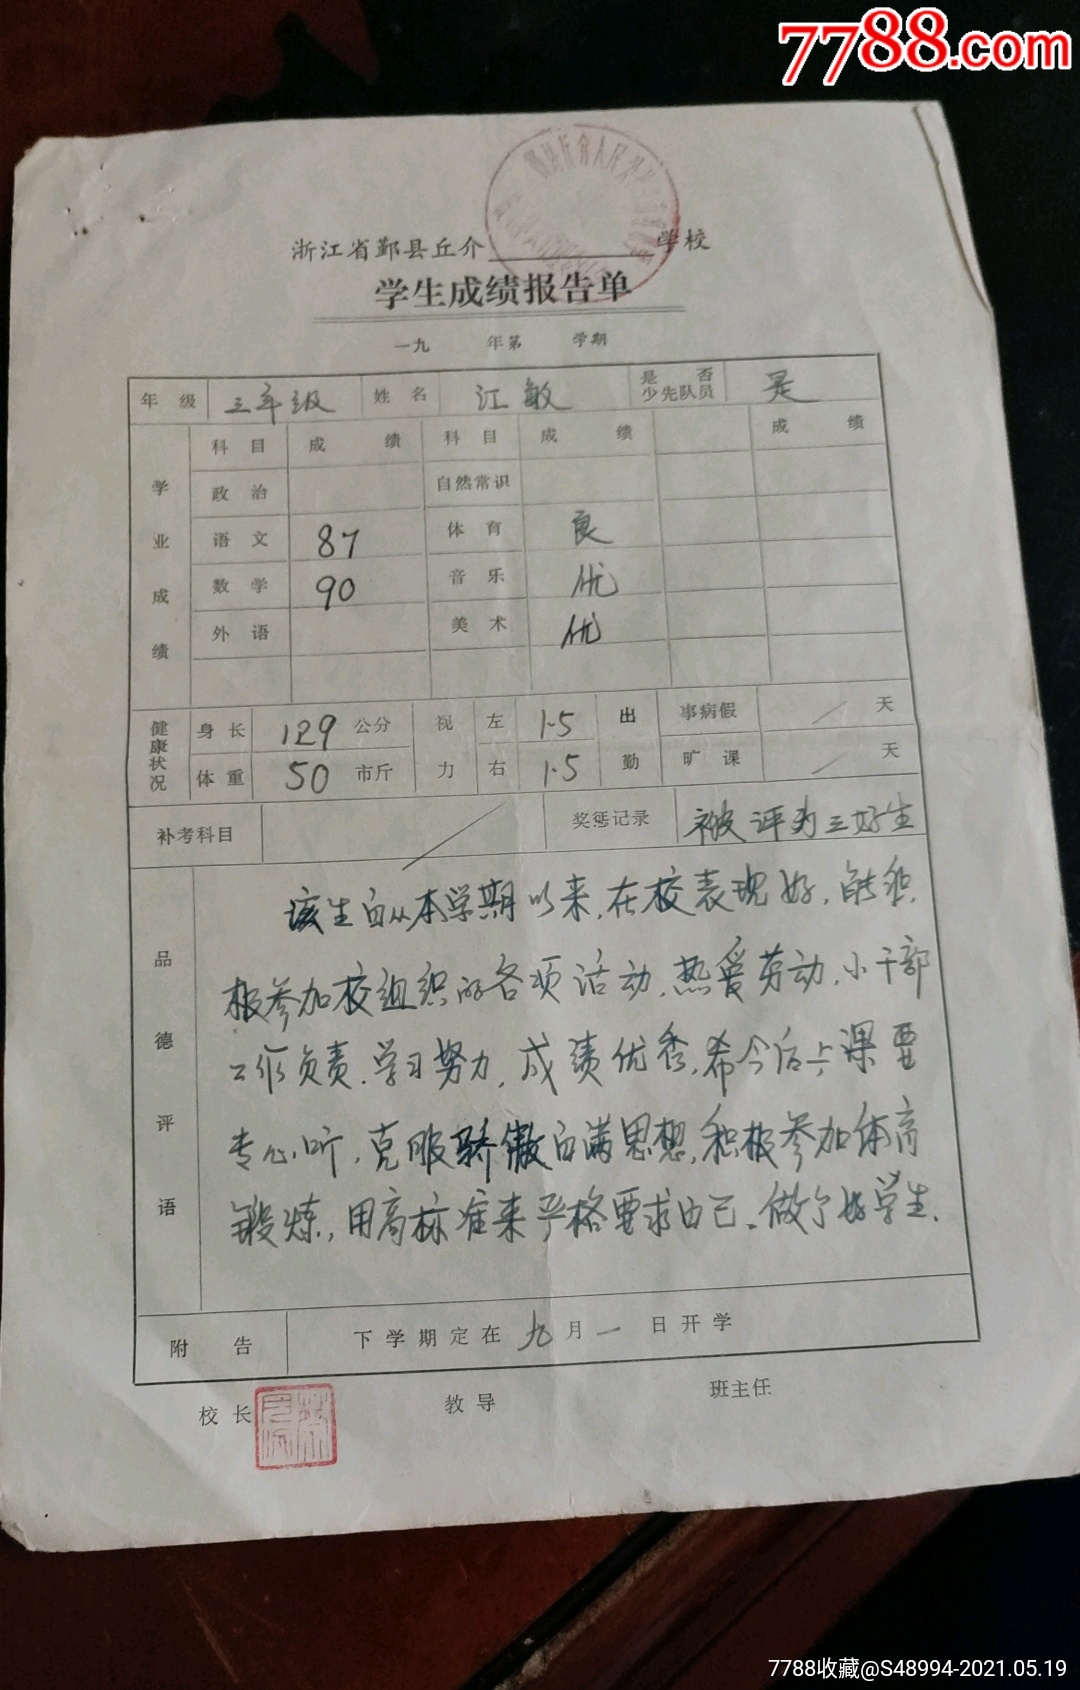 7788.com
浙江省鄞县丘介 学校
学生成绩报告单
一九 年第 学期
年级 三年级 姓名 江敏 是否少先队员 是
学业成绩
科目 成绩 科目 成绩 成绩
政治 自然常识
语文 87 体育 良
数学 90 音乐 优
外语 美术 优
健康状况 身长 129 公分 视力 左 1.5 出勤 事病假 / 天
体重 50 市斤 右 1.5 旷课 / 天
补考科目 / 奖惩记录 被评为三好生
品德评语
该生自从本学期以来,在校表现好,能积
极参加校组织的各项活动,热爱劳动,小干部
工作负责,学习努力,成绩优秀,希今后上课要
专心听,克服骄傲自满思想,积极参加体育
锻炼,用高标准来严格要求自己。做个好学生.
附告 下学期定在九月一日开学
校长 教导 班主任
7788收藏@S48994-2021.05.19